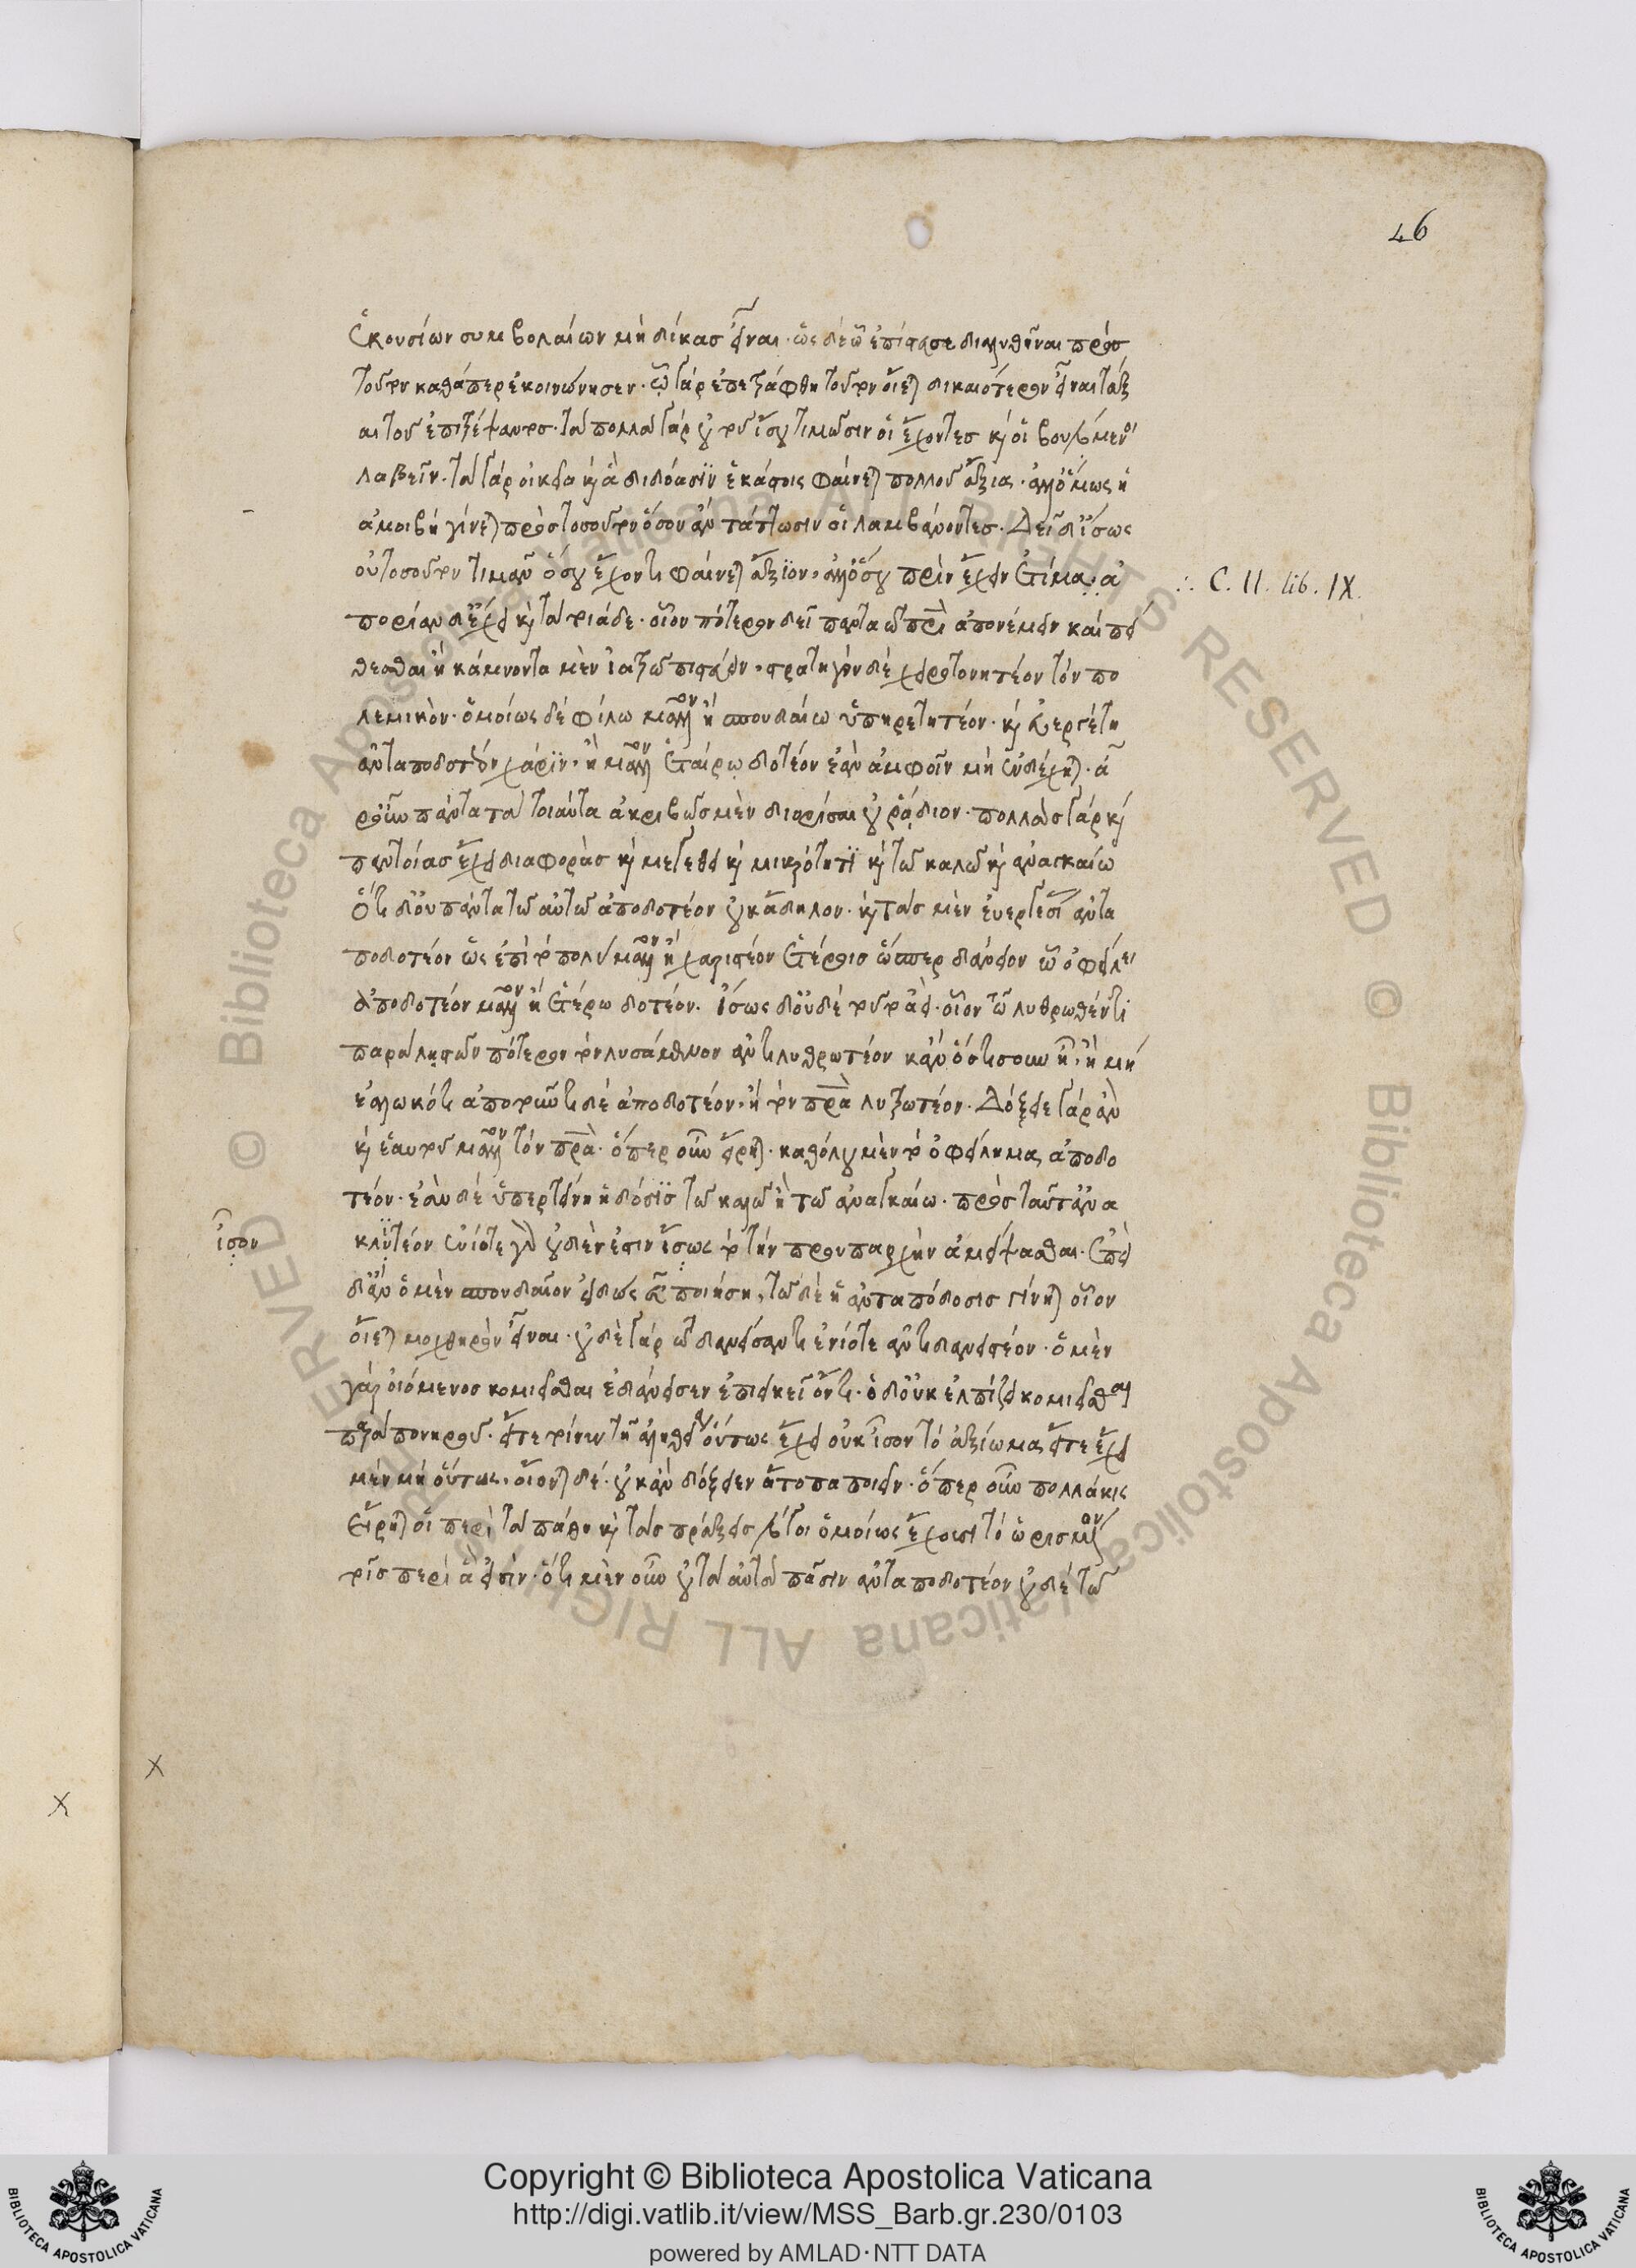 46
ἑκουσίων συμβολαίων μὴ δίκας εἶναι· ὡς δέον ᾧ ἐπίστευσε διαλυθῆναι πρὸς
τοῦτον καθάπερ ἐκοινώνησεν· ᾧ γὰρ ἐπετράφθη τοῦτον οἴεται δικαιότερον εἶναι τάξ
αι τοῦ ἐπιτρέψαντος· τὰ πολλὰ γὰρ οὐ τοῦ ἴσου τιμῶσιν οἱ ἔχοντες καὶ οἱ βουλόμενοι
λαβεῖν· τὰ γὰρ οἰκεῖα καὶ ἃ διδόασϊν ἑκάστοις φαίνεται πολλοῦ ἄξια· ἀλλ' ὅμως ἡ
ἀμοιβὴ γίνεται πρὸς τοσοῦτον ὅσον ἂν τάττωσιν οἱ λαμβάνοντες· Δεῖ δ' ἴσως
οὐ τοσοῦτον τιμᾶν ὅσου ἔχοντι φαίνεται ἄξϊον, ἀλλ' ὅσου πρὶν ἔχειν ἐτίμα· ἀ
∴ C. II. lib. IX.
πορίαν δ' ἔχει καὶ τὰ τοιάδε· οἷον πότερον δεῖ πάντα τῷ πατρὶ ἀπονέμειν καὶ πεί
θεσθαι ἢ κάμνοντα μὲν ἰατρῷ πιστεύειν, στρατηγὸν δὲ χειροτονητέον τὸν πο
λεμικὸν· ὁμοίως δὲ φίλω μᾶλλον ἢ σπουδαίω ὑπηρετητέον· καὶ εὐεργέτη
ἀνταποδοτέον χάρϊν, ἢ μᾶλλον ἑταίρῳ δοτέον ἐὰν ἀμφοῖν μὴ ἐνδέχηται· ἆ
ρ' οὖν πάντα τὰ τοιαῦτα ἀκριβῶς μὲν διορίσαι οὐ ῥᾴδιον· πολλὰς γὰρ καὶ
παντοίας ἔχει διαφορὰς καὶ μεγέθει καὶ μικρότητϊ καὶ τῶ καλῶ καὶ ἀναγκαίω
Ὅτι δ' οὐ πάντα τῶ αὐτῶ ἀποδοτέον οὐκ ἄδηλον· καὶ τὰς μὲν ἐυεργεσί ἀντα
ποδοτέον ὡς ἐπὶ τὸ πολὺ μᾶλλον ἢ χαριστέον ἑτέροις ὥσπερ δάνειον ᾧ ὀφείλει
ἀποδοτέον μᾶλλον ἢ ἑτέρω δοτέον. Ἴσως δ' οὐδὲ τοῦτ' ἀεί· οἷον τῷ λυθρωθέντι
παρὰ ληστῶν πότερον τὸν λυσάμενον ἀντιλυθρωτέον κἂν ὁστισοῦν ἦ, ἢ μὴ
ἑαλωκότι ἀπαιτοῦντι δὲ ἀποδοτέον, ἢ τὸν πατέρα λυτρωτέον· Δόξειε γὰρ ἂν
καὶ ἑαυτοῦ μᾶλλον τὸν πατέρα· ὅπερ οὖν εἴρηται· καθόλου μὲν τὸ ὀφείλημα, ἀποδο
τέον· ἐὰν δὲ ὑπερτείνη ἡ δόσϊς τῶ καλῶ ἢ τῶ ἀναγκαίω· πρὸς ταῦτ' ἀνα
ἴσον
κλϊτέον ἐνίοτε γὰρ οὐδὲν ἐστιν ἴσως τὸ τὴν προυπαρχὴν ἀμείψασθαι· Ἐπεὶ
δ' ἂν ὁ μὲν σπουδαῖον εἰδὼς εὖ ποιήση, τῶ δὲ ἡ ἀνταπόδοσις γίνηται ὃν
οἴεται μοχθηρὸν εἶναι· οὐδὲ γὰρ τῷ δανείσαντι ἐνίοτε ἀντιδανειστέον· ὁ μὲν
γὰρ οἰόμενος κομιεῖσθαι ἐδάνεισεν ἐπιεικεῖ ὄντι· ὁ δ' οὐκ ἐλπίζει κομιεῖσθαι
παρὰ πονηροῦ· εἴτε τοίνυν τῆ ἀληθεία οὕτως ἔχει οὐκ ἴσον τὸ ἀξίωμα, εἴτε ἔχει
μὲν μὴ οὕτως, οἴονται δέ· οὐκ ἂν δόξειεν ἄτοπα ποιεῖν· ὅπερ οὖν πολλάκις
εἴρηται οἱ περὶ τὰ πάθη καὶ τὰς πράξεις λόγοι ὁμοίως ἔχουσι τὸ ὡρισμένον
τοῖς περὶ ἅ εἰσὶν· ὅτι μὲν οὖν οὐ τὰ αὐτὰ πᾶσιν ἀνταποδοτέον οὐδὲ τῶ
X
X
Copyright © Biblioteca Apostolica Vaticana
http://digi.vatlib.it/view/MSS_Barb.gr.230/0103
powered by AMLAD·NTT DATA